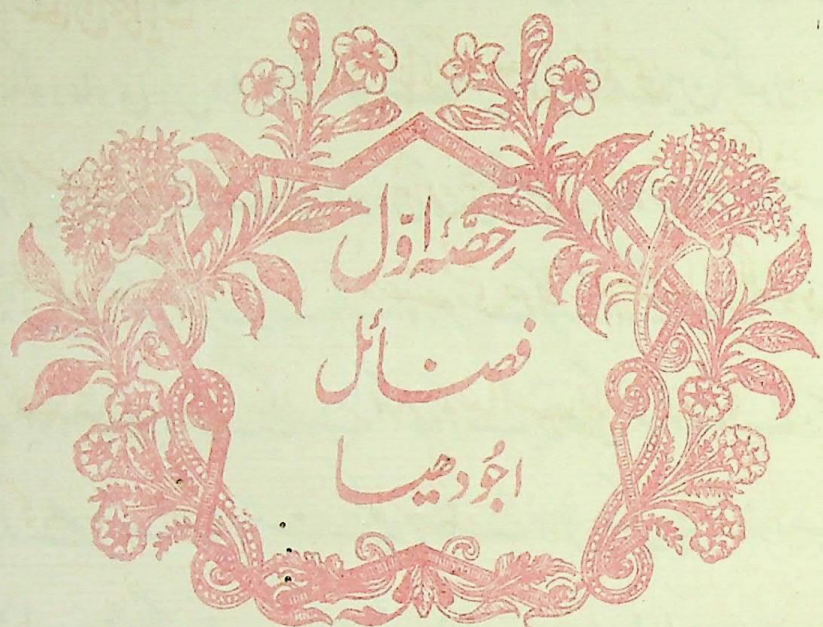 حصّہ اوّل
فضائل
اجُودھیا